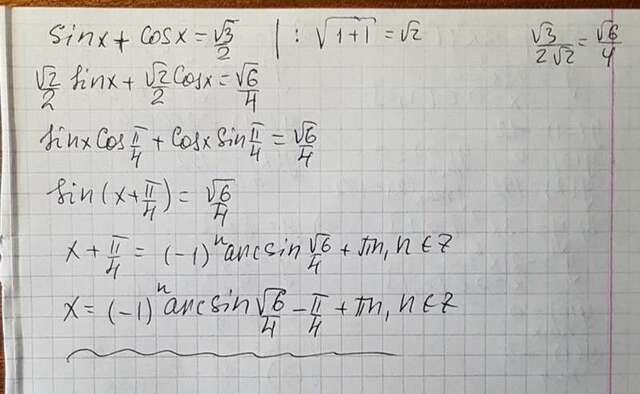 sinx + cosx = √3/2 | : √(1+1) = √2 √3/(2√2) = √6/4
√2/2 sinx + √2/2 cosx = √6/4
sinx cos π/4 + cosx sin π/4 = √6/4
sin(x + π/4) = √6/4
x + π/4 = (-1)ⁿ arcsin √6/4 + πn, n ∈ Z
x = (-1)ⁿ arcsin √6/4 - π/4 + πn, n ∈ Z